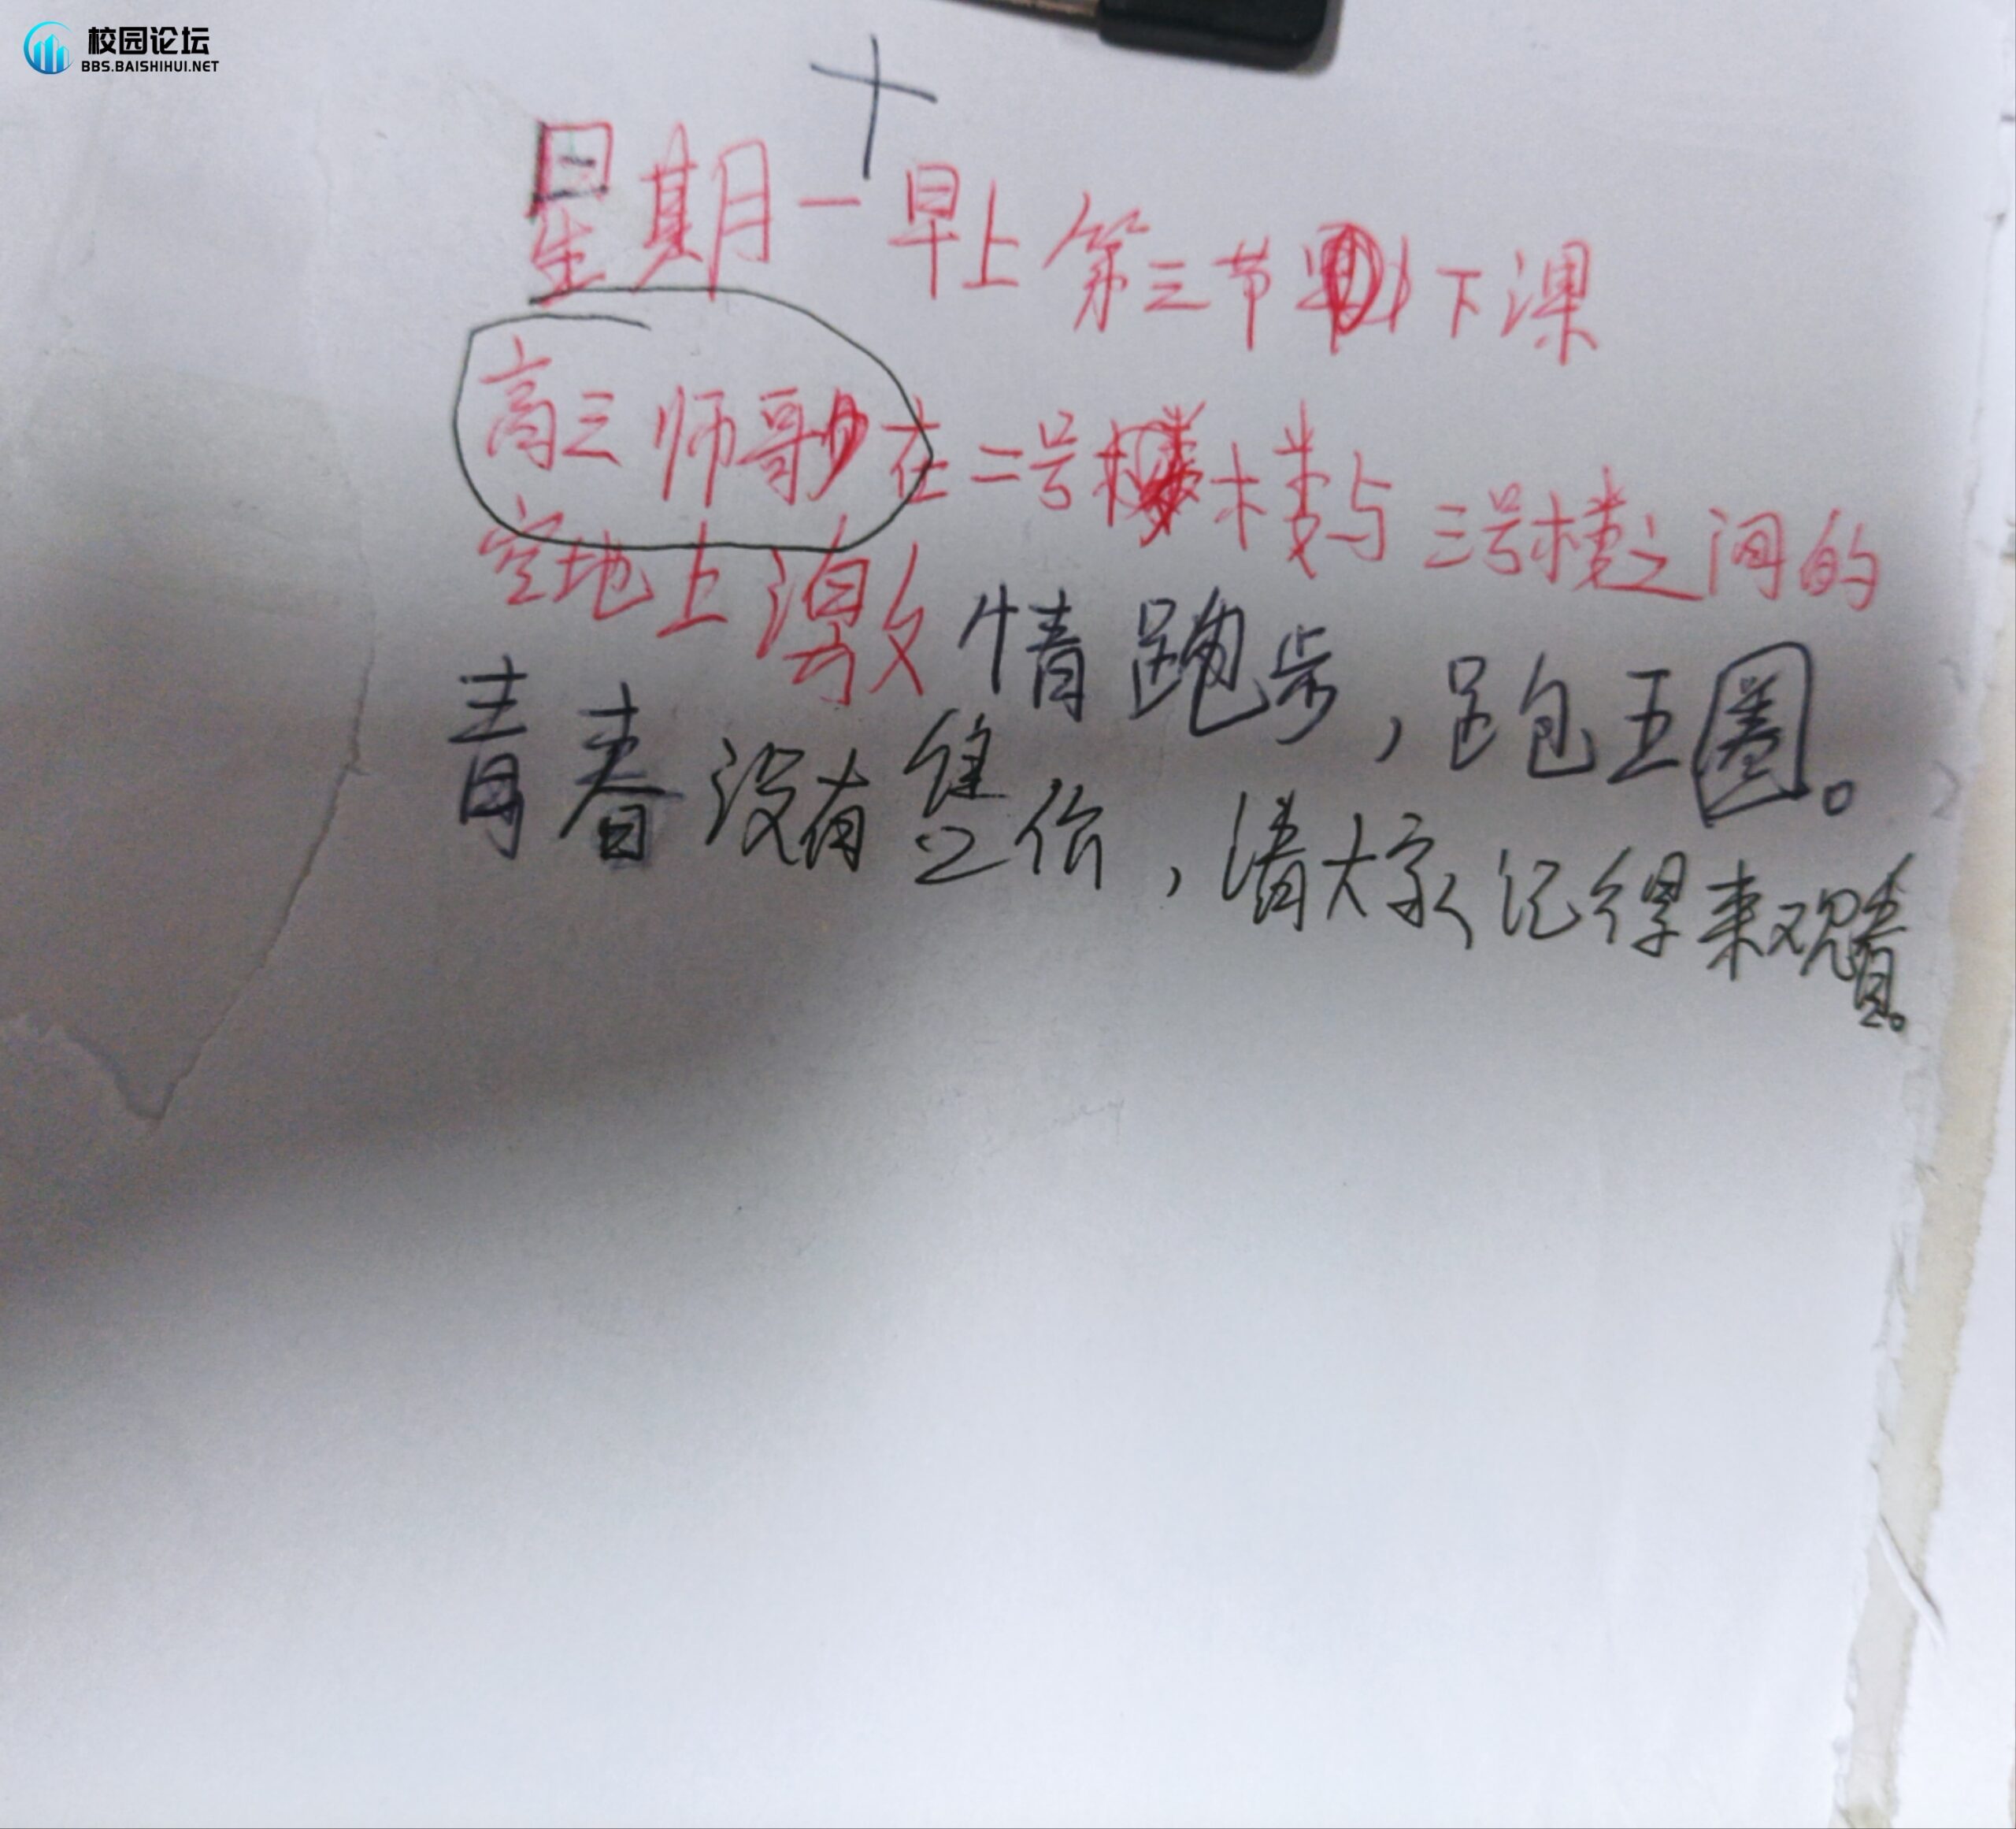 校园论坛
BBS.BAISHIHUI.NET
星期一早上第三节下课
高三师哥在二号楼与三号楼之间的
空地上激情跑步,跑五圈。
青春没有售价,请大家记得来观看。